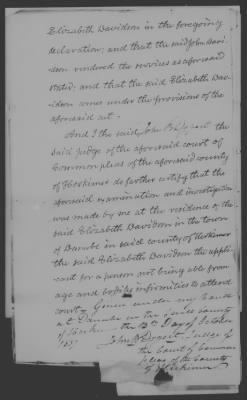 Elizabeth Davidson in the foregoing
declaration; and that the said John Davi-
dson rendered the services as aforesaid
stated; and that the said Elizabeth Dav-
idson comes under the provisions of the
aforesaid act.
And I the said, John B.
said judge of the aforesaid court of
Common pleas of the aforesaid county
of Herkimer do farther certify that the
aforesaid examination and investigation
was made by me at the residence of the
said Elizabeth Davidson in the town
of Danube in said county of Herkimer
the said Elizabeth Davidson the appli-
cant for a person not being able from
age and bodily infirmities to attend
court. Given under my hand
at Danube in the said county
of Herkimer the 13th Day of October
John B. Judge of
the Court of Common
pleas of the County
of Herkimer